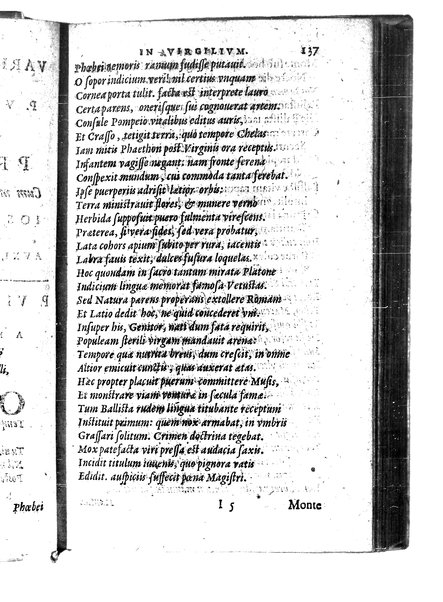 IN A VERGILIVM. 137
Phœbei nemoris ramum fudisse putauit.
O sopor indicium veri! nil certius vnquam
Cornea porta tulit. facta est interprete lauro
Certa parens, onerisque sui cognouerat artem.
Consule Pompeio vitalibus editus auris,
Et Crasso, tetigit terra, quo tempore Chelas
Iam mitis Phaethon post Virginis ora receptus.
Infantem vagisse negant: nam fronte serena
Conspexit mundum, cui commoda tanta ferebat.
Ipse puerperiis adrisit lætior orbis:
Terra ministrauit flores, & munere verno
Herbida supposuit puero fulmenta virescens.
Præterea, si vera fides, sed vera probatur,
Lata cohors apium subito per rura, iacentis
Labra fauis texit, dulces fusura loquelas.
Hoc quondam in sacro tantum mirata Platone
Indicium linguæ memorat famosa Vetustas.
Sed Natura parens properans extollere Romam
Et Latio dedit hoc, ne quid concederet vni.
Insuper his, Genitor, nati dum fata requirit,
Populeam sterili virgam mandauit arenæ:
Tempore quæ nutrita breui, dum crescit, in omne
Altior emicuit cunctis, quas auxerat ætas.
Hæc propter placuit puerum committere Musis,
Et monstrare viam ventura in sæcula famæ.
Tum Ballista rudem lingua titubante receptum
Instituit primum: quem nox armabat, in vmbris
Grassari solitum. Crimen doctrina tegebat.
Mox patefacta viri pressa est audacia saxis.
Incidit titulum iuuenis, quo pignora vatis
Edidit. auspiciis suffecit pœna Magistri.
I 5 Monte
Phœbei